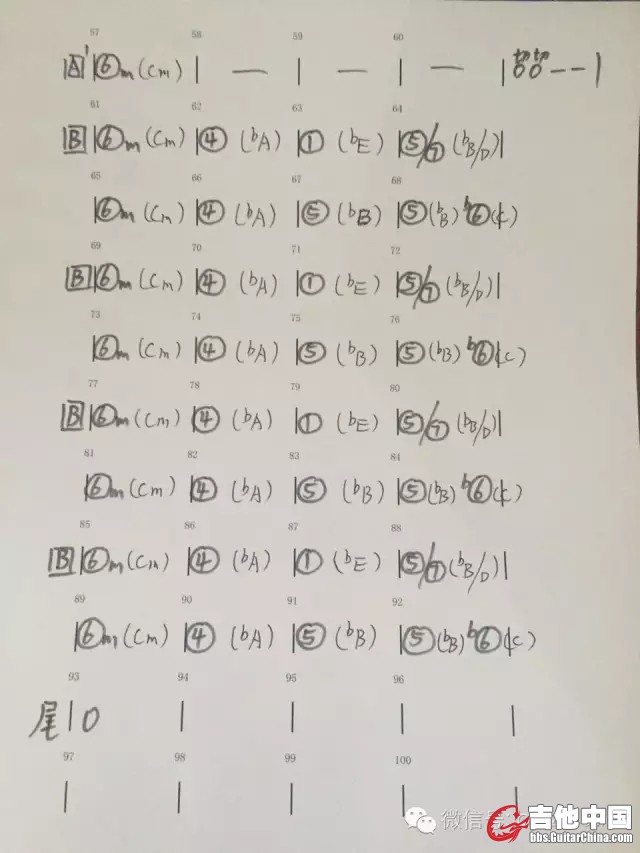 57 58 59 60
A' |⑥m(Cm) | — | — | — |切0 切0 - - |
61 62 63 64
B |⑥m(Cm) |④ (bA) |① (bE) |⑤/⑦(bB/D)|
65 66 67 68
|⑥m(Cm) |④ (bA) |⑤ (bB) |⑤(bB) b⑥
69 70 71 72
B |⑥m(Cm) |④ (bA) |① (bE) |⑤/⑦(bB/D)|
73 74 75 76
|⑥m(Cm) |④ (bA) |⑤ (bB) |⑤(bB) b⑥
77 78 79 80
B |⑥m(Cm) |④ (bA) |① (bE) |⑤/⑦(bB/D)|
81 82 83 84
|⑥m(Cm) |④ (bA) |⑤ (bB) |⑤(bB) b⑥
85 86 87 88
B |⑥m(Cm) |④ (bA) |① (bE) |⑤/⑦(bB/D)|
89 90 91 92
|⑥m(Cm) |④ (bA) |⑤ (bB) |⑤(bB) b⑥
93 94 95 96
尾 | 0 | | | |
97 98 99 100
| | | | |
微信号
吉他中国
bbs.GuitarChina.com